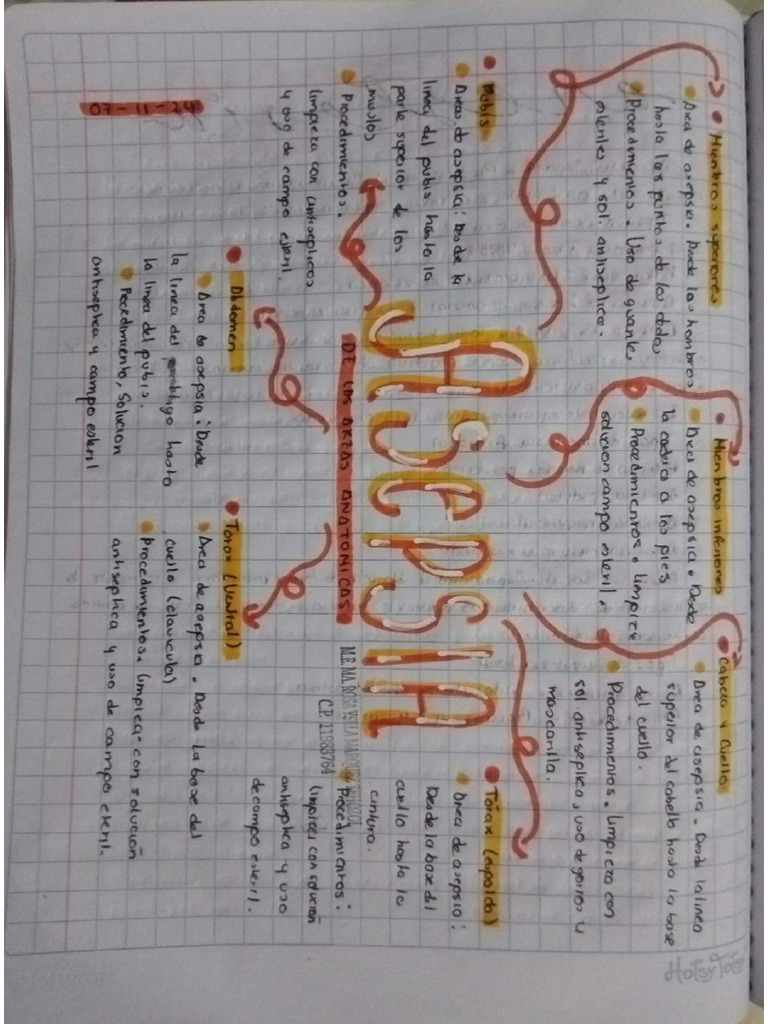 Miembros superiores
Area de asepsia. Desde los hombros
hasta las puntas de los dedos
Procedimientos. Uso de guantes
esteriles y sol. antiseptica.
Miembros inferiores
Area de asepsia. Desde
la cadera a los pies
Procedimientos. limpieza
solucion campo esteril.
Cabeza y Cuello
Area de asepsia. Desde la linea
superior del cabello hasta la base
del cuello.
Procedimientos. Limpieza con
sol antiseptica, uso de gorros y
mascarilla.
Pubis
Areas do asepsia: Desde la
linea del pubis hasta la
parte superior de los
muslos
Procedimientos.
limpieza con antisepticos
y uso de campo esteril.
ASEPSIA
DE LAS AREAS ANATOMICAS
Torax (espalda)
Area de asepsia:
Desde la base del
cuello hasta la
cintura.
Procedimientos.
limpieza con solución
antiseptica y uso
de campo esteril.
Abdomen
Area de asepsia: Desde
la linea del ombligo hasta
la linea del pubis.
Procedimiento, Solucion
antiseptica y campo esteril
Torax (Ventral)
Area de asepsia. Desde la base del
cuello (clavicula)
Procedimientos. limpieza con solución
antiseptica y uso de campo esteril.
07-11-24
C.P. 11983764